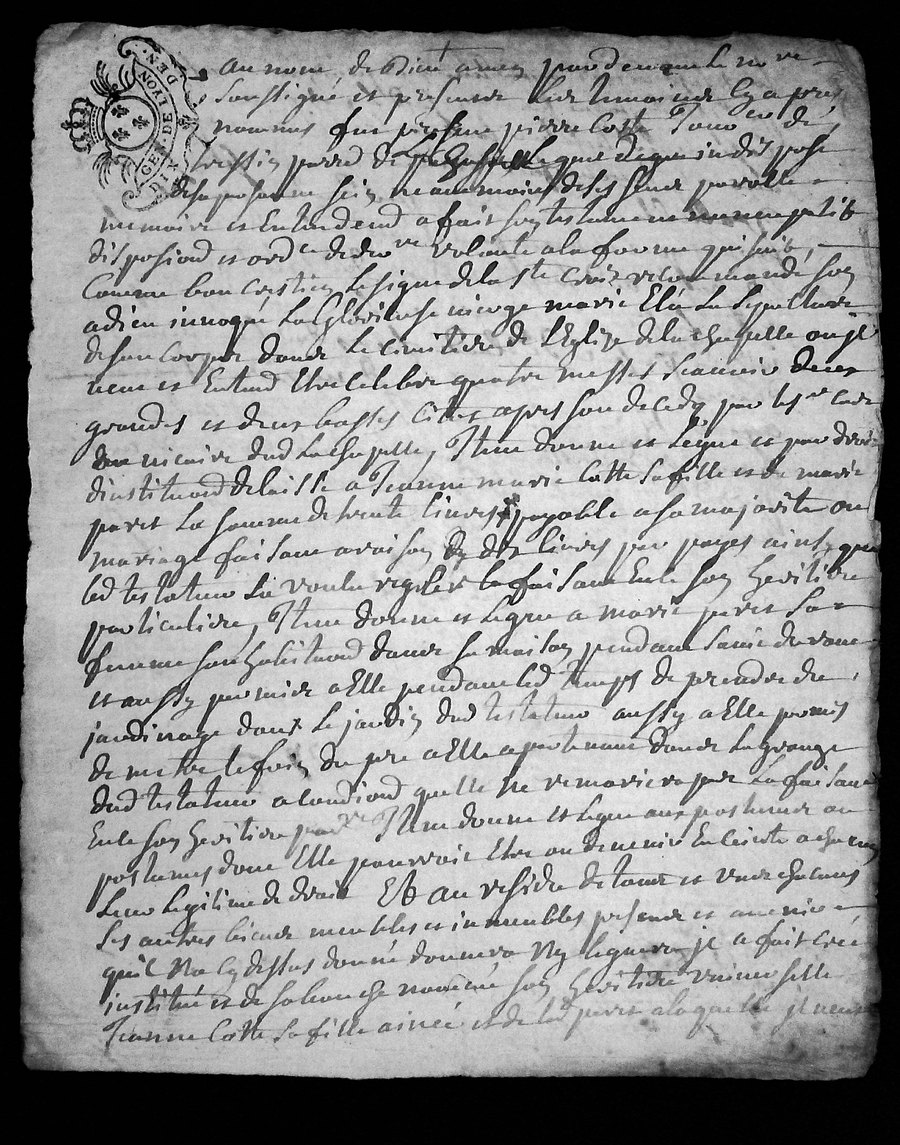 GENE. DE LYON
DEN.
au nom de Dieu amen pardevant le no re
soussigné et presence des temoins cy apres
nommes fut present pierre Cotte
parroisse de
de sa personne sain neanmoins de ses sens parolle
memoire et Entendend a fait son testament nuncupatif
disposiond et ord ce de der re volonté a la forme qui suit,
Comme bon crestien le signe de la s te Croix recommandé son
a dieu invoqué La Glorieuse vierge marie Elu La Sepulture
de son Corps dans Le Cimitiere de l'Eglize de la chapelle ou jl
veut et Entend Etre celebré quatre messes scavoir deux
grandes et deux basses apres son decedz par les s r curé
vicaire dud Lachapelle, Item donne et Legue et par droit
d'institiond delaisse a Jeanne marie Cotte sa fille et de marie
peret La somme de trente livres payable a sa majorité ou
mariage faisant a raison de dix livres par payes ainsy que
led testateur La voulu regler La faisant En ce son heritiere
particuliere, Item donne et Legue a marie peret Sa
femme son habitiond dans sa maison pendant sa vie durant
et aussy permier a Elle pendant led temps de prendre du
jardinage dans le jardin dud testateur aussy a Elle permis
de metre le foin du pre a Elle apartenant dans La grange
dud testateur a Condiond quelle ne remariera pas La faisant
En ce son heritiere par re Item donne et Legue aux postumes ou
postumes dont Elle pourroit Etre ou devenir Enceinte a chacun
Leur Legitime de droit Et au residu de tous et uns chacuns
ses autres biens meubles et inmeubles presens et avenir
quil Na cy dessus donné donnera Ny leguera jl a fait créé
institué et de sa bouche nommé son heritiere universelle
Jeanne Cotte sa fille ainée et de lad peret a laquelle jl veut